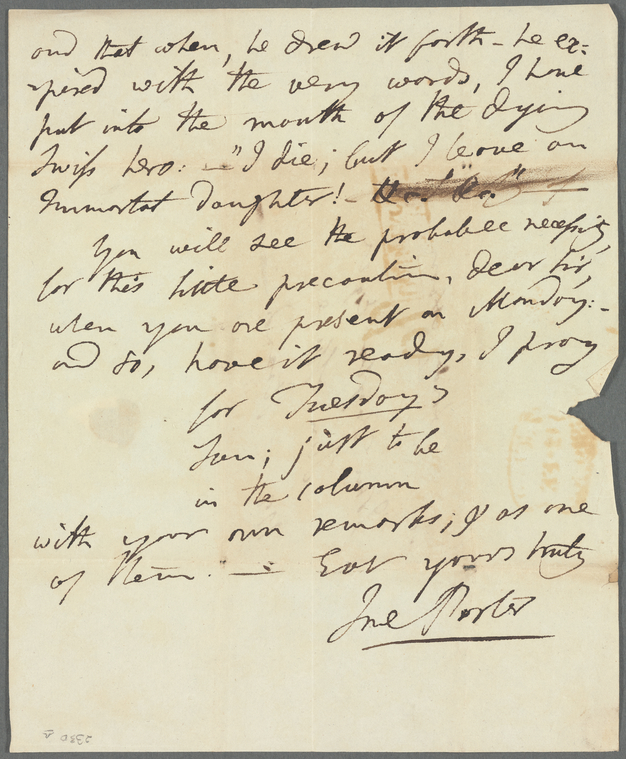 and that when, he drew it forth - he ex=
=pired with the very words, I have
put into the mouth of the dying
Swiss hero: - "I die; but I leave an
Immortal Daughter! -
You will see the probable necessity,
for this little precaution, dear Sir,
when you are present on Monday: -
and so, have it ready, I pray
for Tuesday's
Sun; just to be
in the column
with your own remarks; & as one
of them. - Ever yours truly
Jne Porter
2330 v